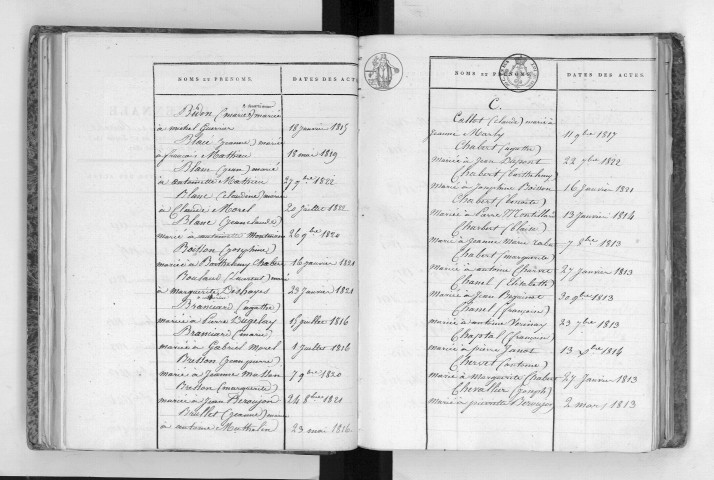 NOMS ET PRÉNOMS. DATES DES ACTES
Bidon (marie) mariée
à michel Guerrier 18 janvier 1815
Blanc (jeanne) mariée
à françois Mathieu 18 mai 1819
Blanc (jean) marié
à antoinette Mathieu 27 9bre 1822
Blanc (claudine) mariée
à Claude Morel 20 juillet 1822
Blanc (jean claude)
marié à antoinette Montmain 26 9bre 1820
Boisson (josephine)
mariée à Barthelemy Chabert 16 janvier 1821
Boulaud (Laurent) marié
à marguerite Deshayes 23 janvier 1821
Branciard (agathe)
mariée à Pierre Dugelay 15 juillet 1816
Branciard (marie)
mariée à Gabriel Morel 1 juillet 1816
Bresson (jean pierre)
marié à Jeanne Masson 7 9bre 1820
Bresson (marguerite)
mariée à Jean Beraujon 24 8bre 1821
Brullet (jeanne) mariée
à antoine Mathelin 23 mai 1816.
NOMS ET PRÉNOMS. DATES DES ACTES.
C.
Callot (claude) marié à
jeanne Marly 11 9bre 1817
Chabert (agathe)
mariée à Jean Dupont 22 7bre 1822
Chabert (barthelemy)
marié à Josephine Boisson 16 janvier 1821
Chabert (benoite)
mariée à Pierre Montilland 13 janvier 1814
Chabert (blaise)
marié à Jeanne Marie 7 8bre 1813
Chabert (marguerite)
mariée à antoine Chervet 27 janvier 1813
Chanel (Elisabeth)
mariée à Jean Beguinet 30 9bre 1813
Chanel (françoise)
mariée à antoine Voisinay 23 7bre 1813
Chaptal (françoise)
mariée à pierre Janot 13 Xbre 1814
Chervet (antoine)
marié à marguerite Chabert 27 Janvier 1813
Chevallier (joseph)
marié à pierrette Beraujon 2 mars 1813